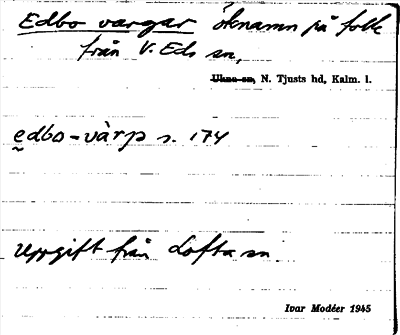 Edbo vargar öknamn på folk
från V. Eds sn,
Ukna sn, N. Tjusts hd, Kalm. l.
edbo-vàrp s. 174
Uppgift från Lofta sn
Ivar Modéer 1945